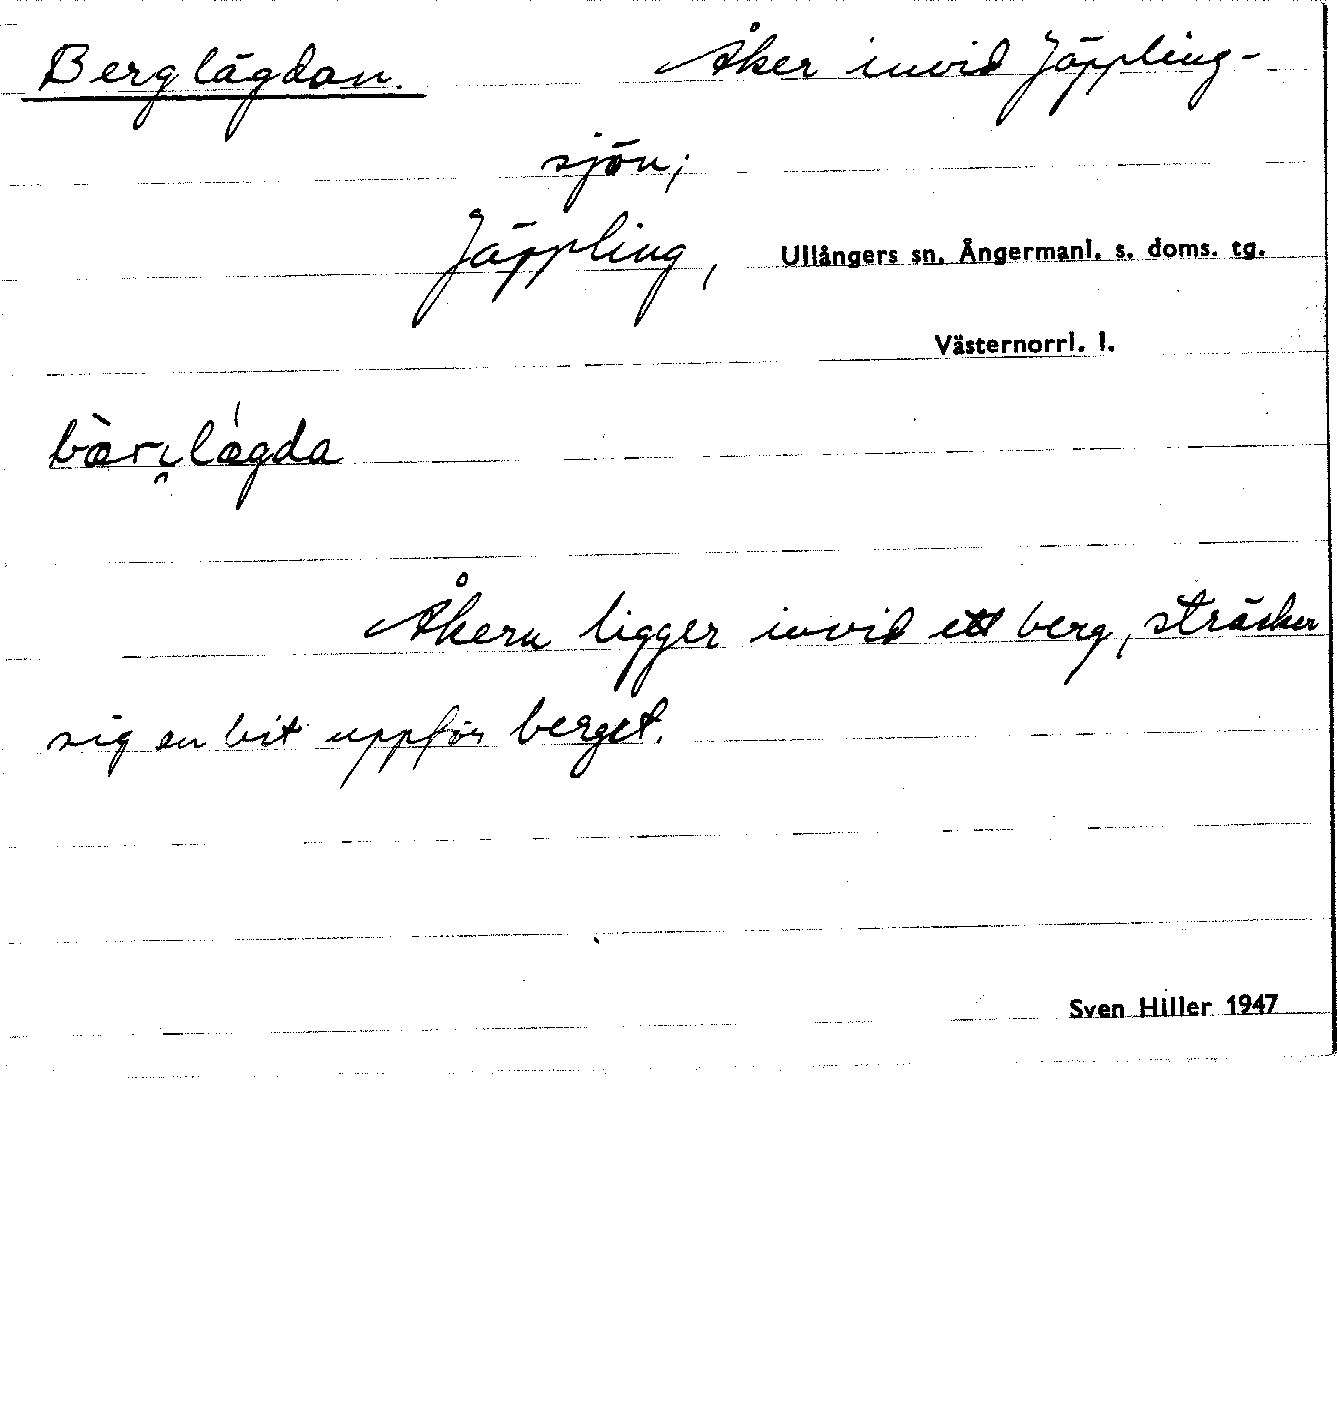 Berglägdan. Åker invid Jäppling-
sjön;
Jäppling, Ullångers sn. Ångermanl. s. doms. tg.
Västernorrl. l.
Åkern ligger invid ett berg, sträcker
sig en bit uppför berget.
Sven Hiller 1947